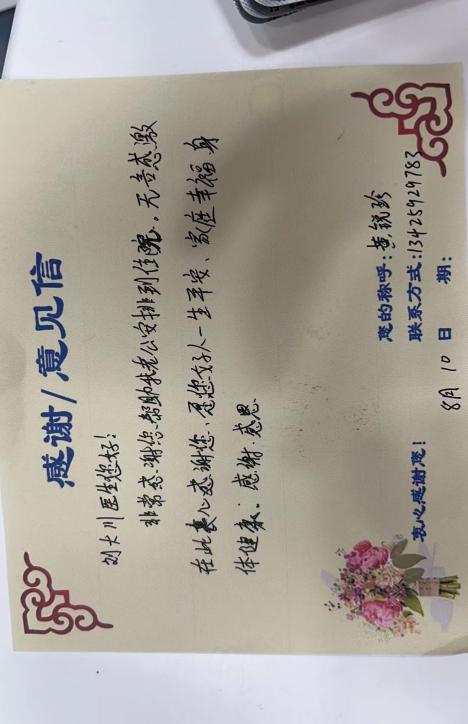 感谢/意见信
刘大川医生您好!
非常感谢您帮助我老公安排到住院,无言感激
在此衷心感谢您、愿您好人一生平安、家庭幸福身
体健康。感谢感恩
您的称呼:黄锐珍
联系方式:13425929783
8月10日 期:
衷心感谢您!